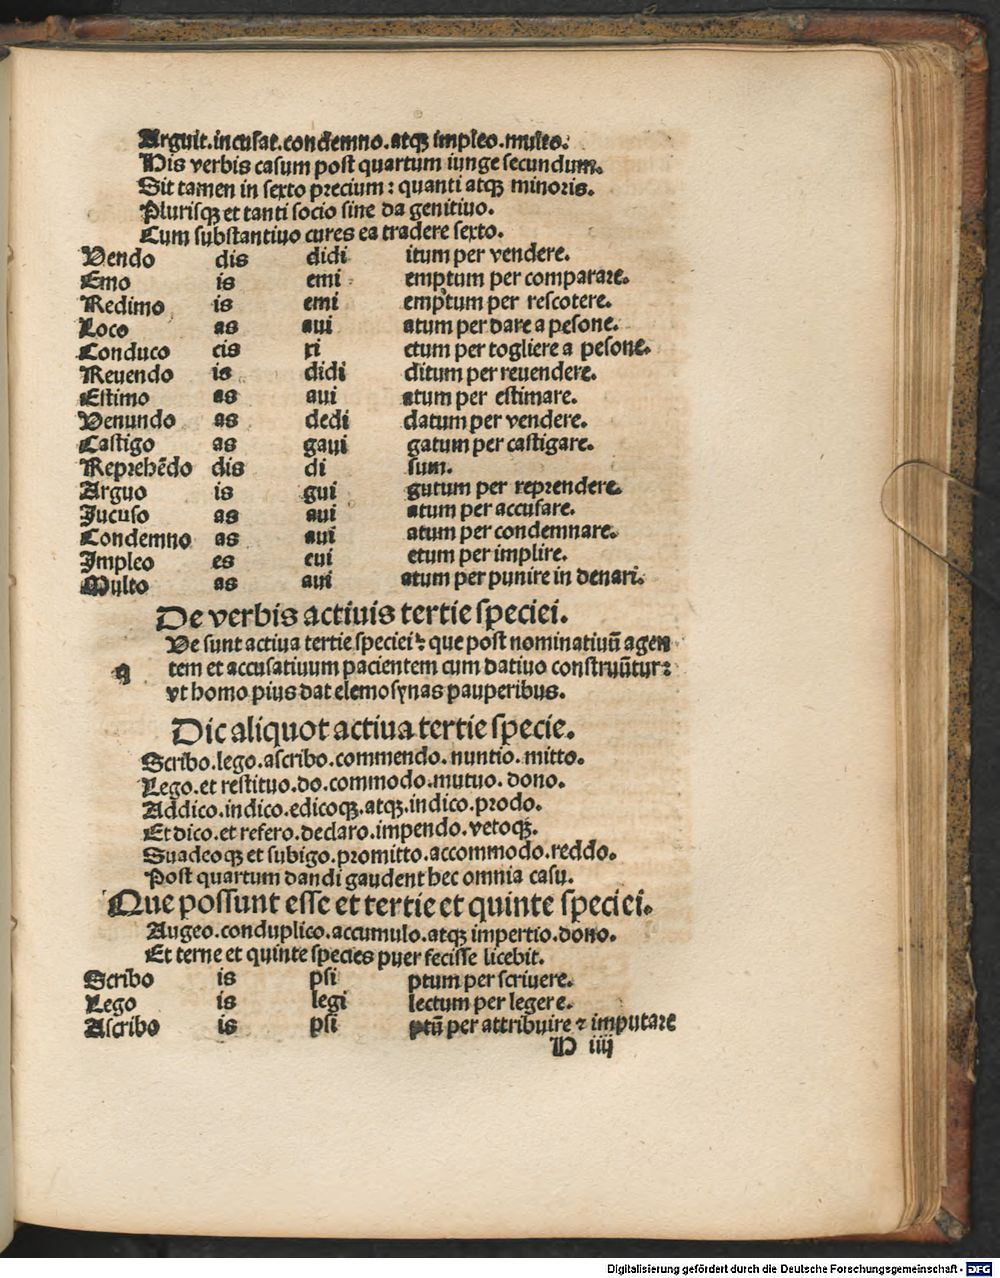 Arguit.incusat.condemno.atqꝫ impleo.multo.
His verbis casum post quartum iunge secundum.
Sit tamen in sexto precium: quanti atqꝫ minoris.
Plurisqꝫ et tanti socio sine da genitiuo.
Cum substantiuo cures ea tradere sexto.
Vendo dis didi itum per vendere.
Emo is emi emptum per comparare.
Redimo is emi emptum per rescotere.
Loco as aui atum per dare a pesone.
Conduco cis xi ctum per togliere a pesone.
Reuendo is didi ditum per reuendere.
Estimo as aui atum per estimare.
Venundo as dedi datum per vendere.
Castigo as gaui gatum per castigare.
Reprehẽdo dis di sum.
Arguo is gui gutum per reprendere.
Jucuso as aui atum per accusare.
Condemno as aui atum per condemnare.
Impleo es eui etum per implire.
Multo as aui atum per punire in denari.
De verbis actiuis tertie speciei.
Ve sunt actiua tertie speciei: que post nominatiuũ agen
q tem et accusatiuum pacientem cum datiuo construũtur:
vt homo pius dat elemosynas pauperibus.
Dic aliquot actiua tertie specie.
Scribo.lego.ascribo.commendo.nuntio.mitto.
Lego.et restituo.do.commodo.mutuo.dono.
Addico.indico.edicoqꝫ.atqꝫ.indico.prodo.
Et dico.et refero.declaro.impendo.vetoqꝫ.
Suadeoqꝫ et subigo.promitto.accommodo.reddo.
Post quartum dandi gaudent hec omnia casu.
Que possunt esse et tertie et quinte speciei.
Augeo.conduplico.accumulo.atqꝫ impertio.dono.
Et terne et quinte species puer fecisse licebit.
Scribo is psi ptum per scriuere.
Lego is legi lectum per legere.
Ascribo is psi ptũ per attribuire ⁊ imputare
H iiij
Digitalisierung gefördert durch die Deutsche Forschungsgemeinschaft - DFG